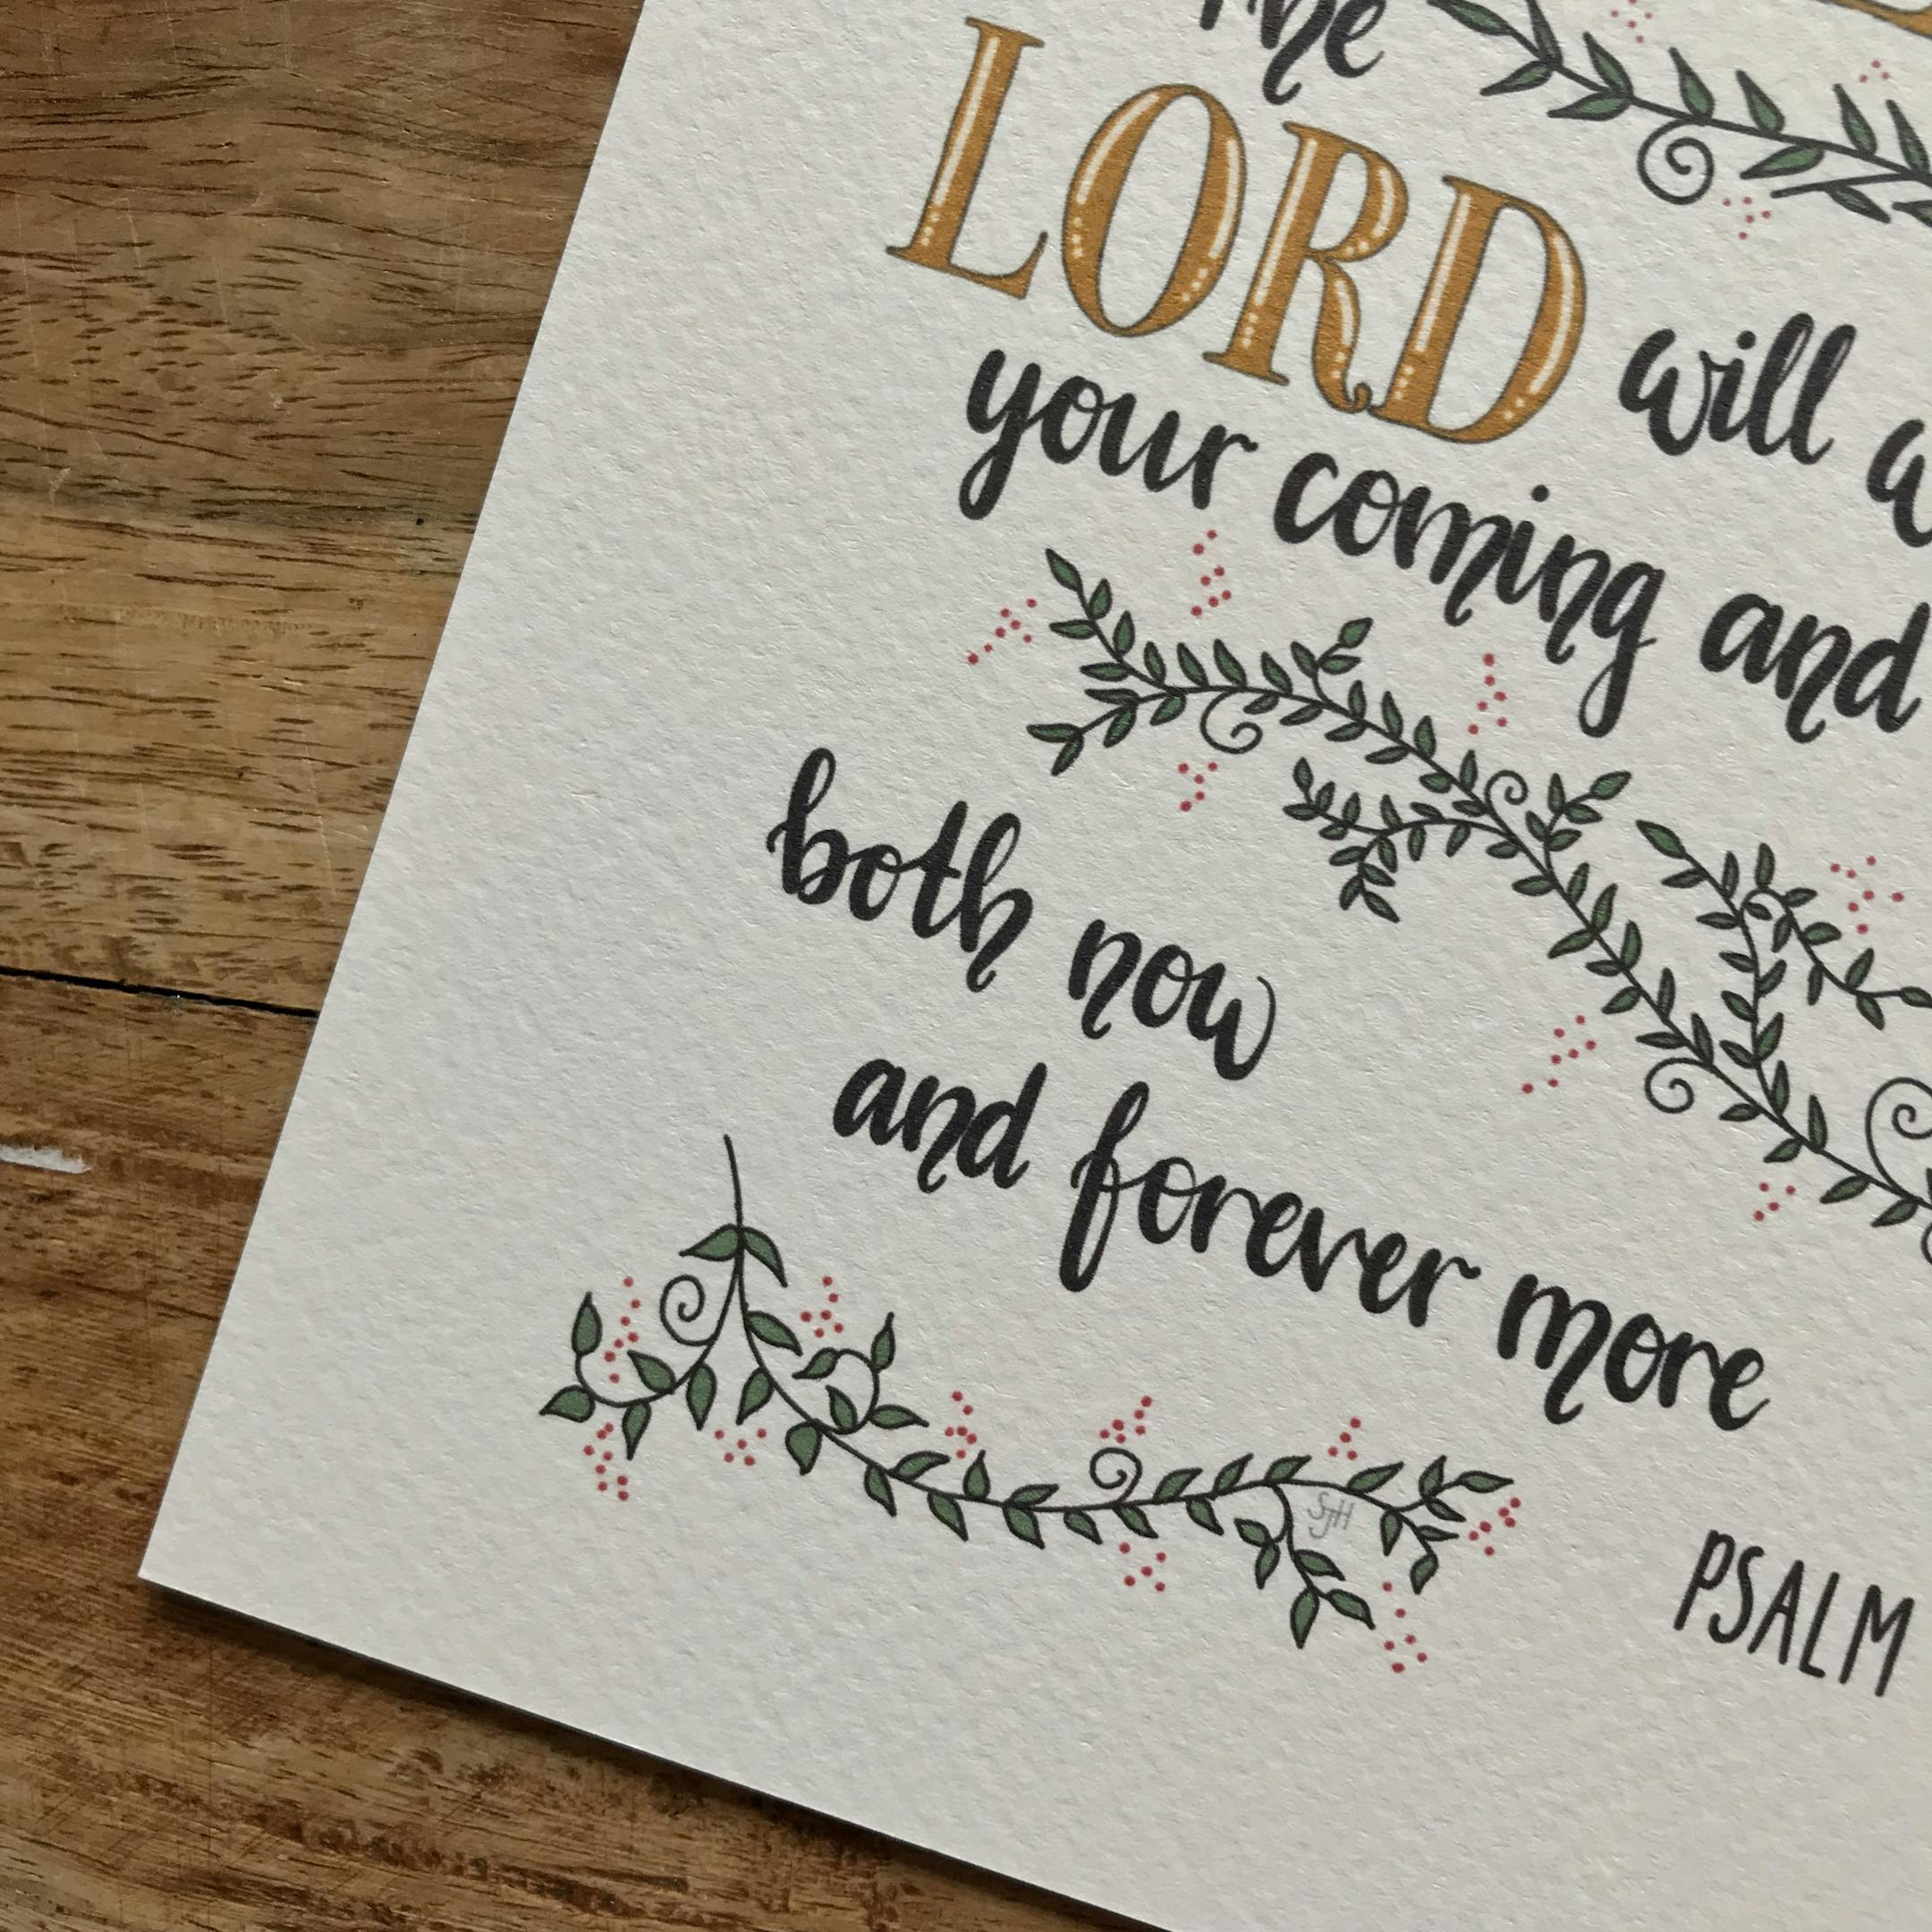 the
LORD will
your coming and
both now
and forever more
SJH
PSALM